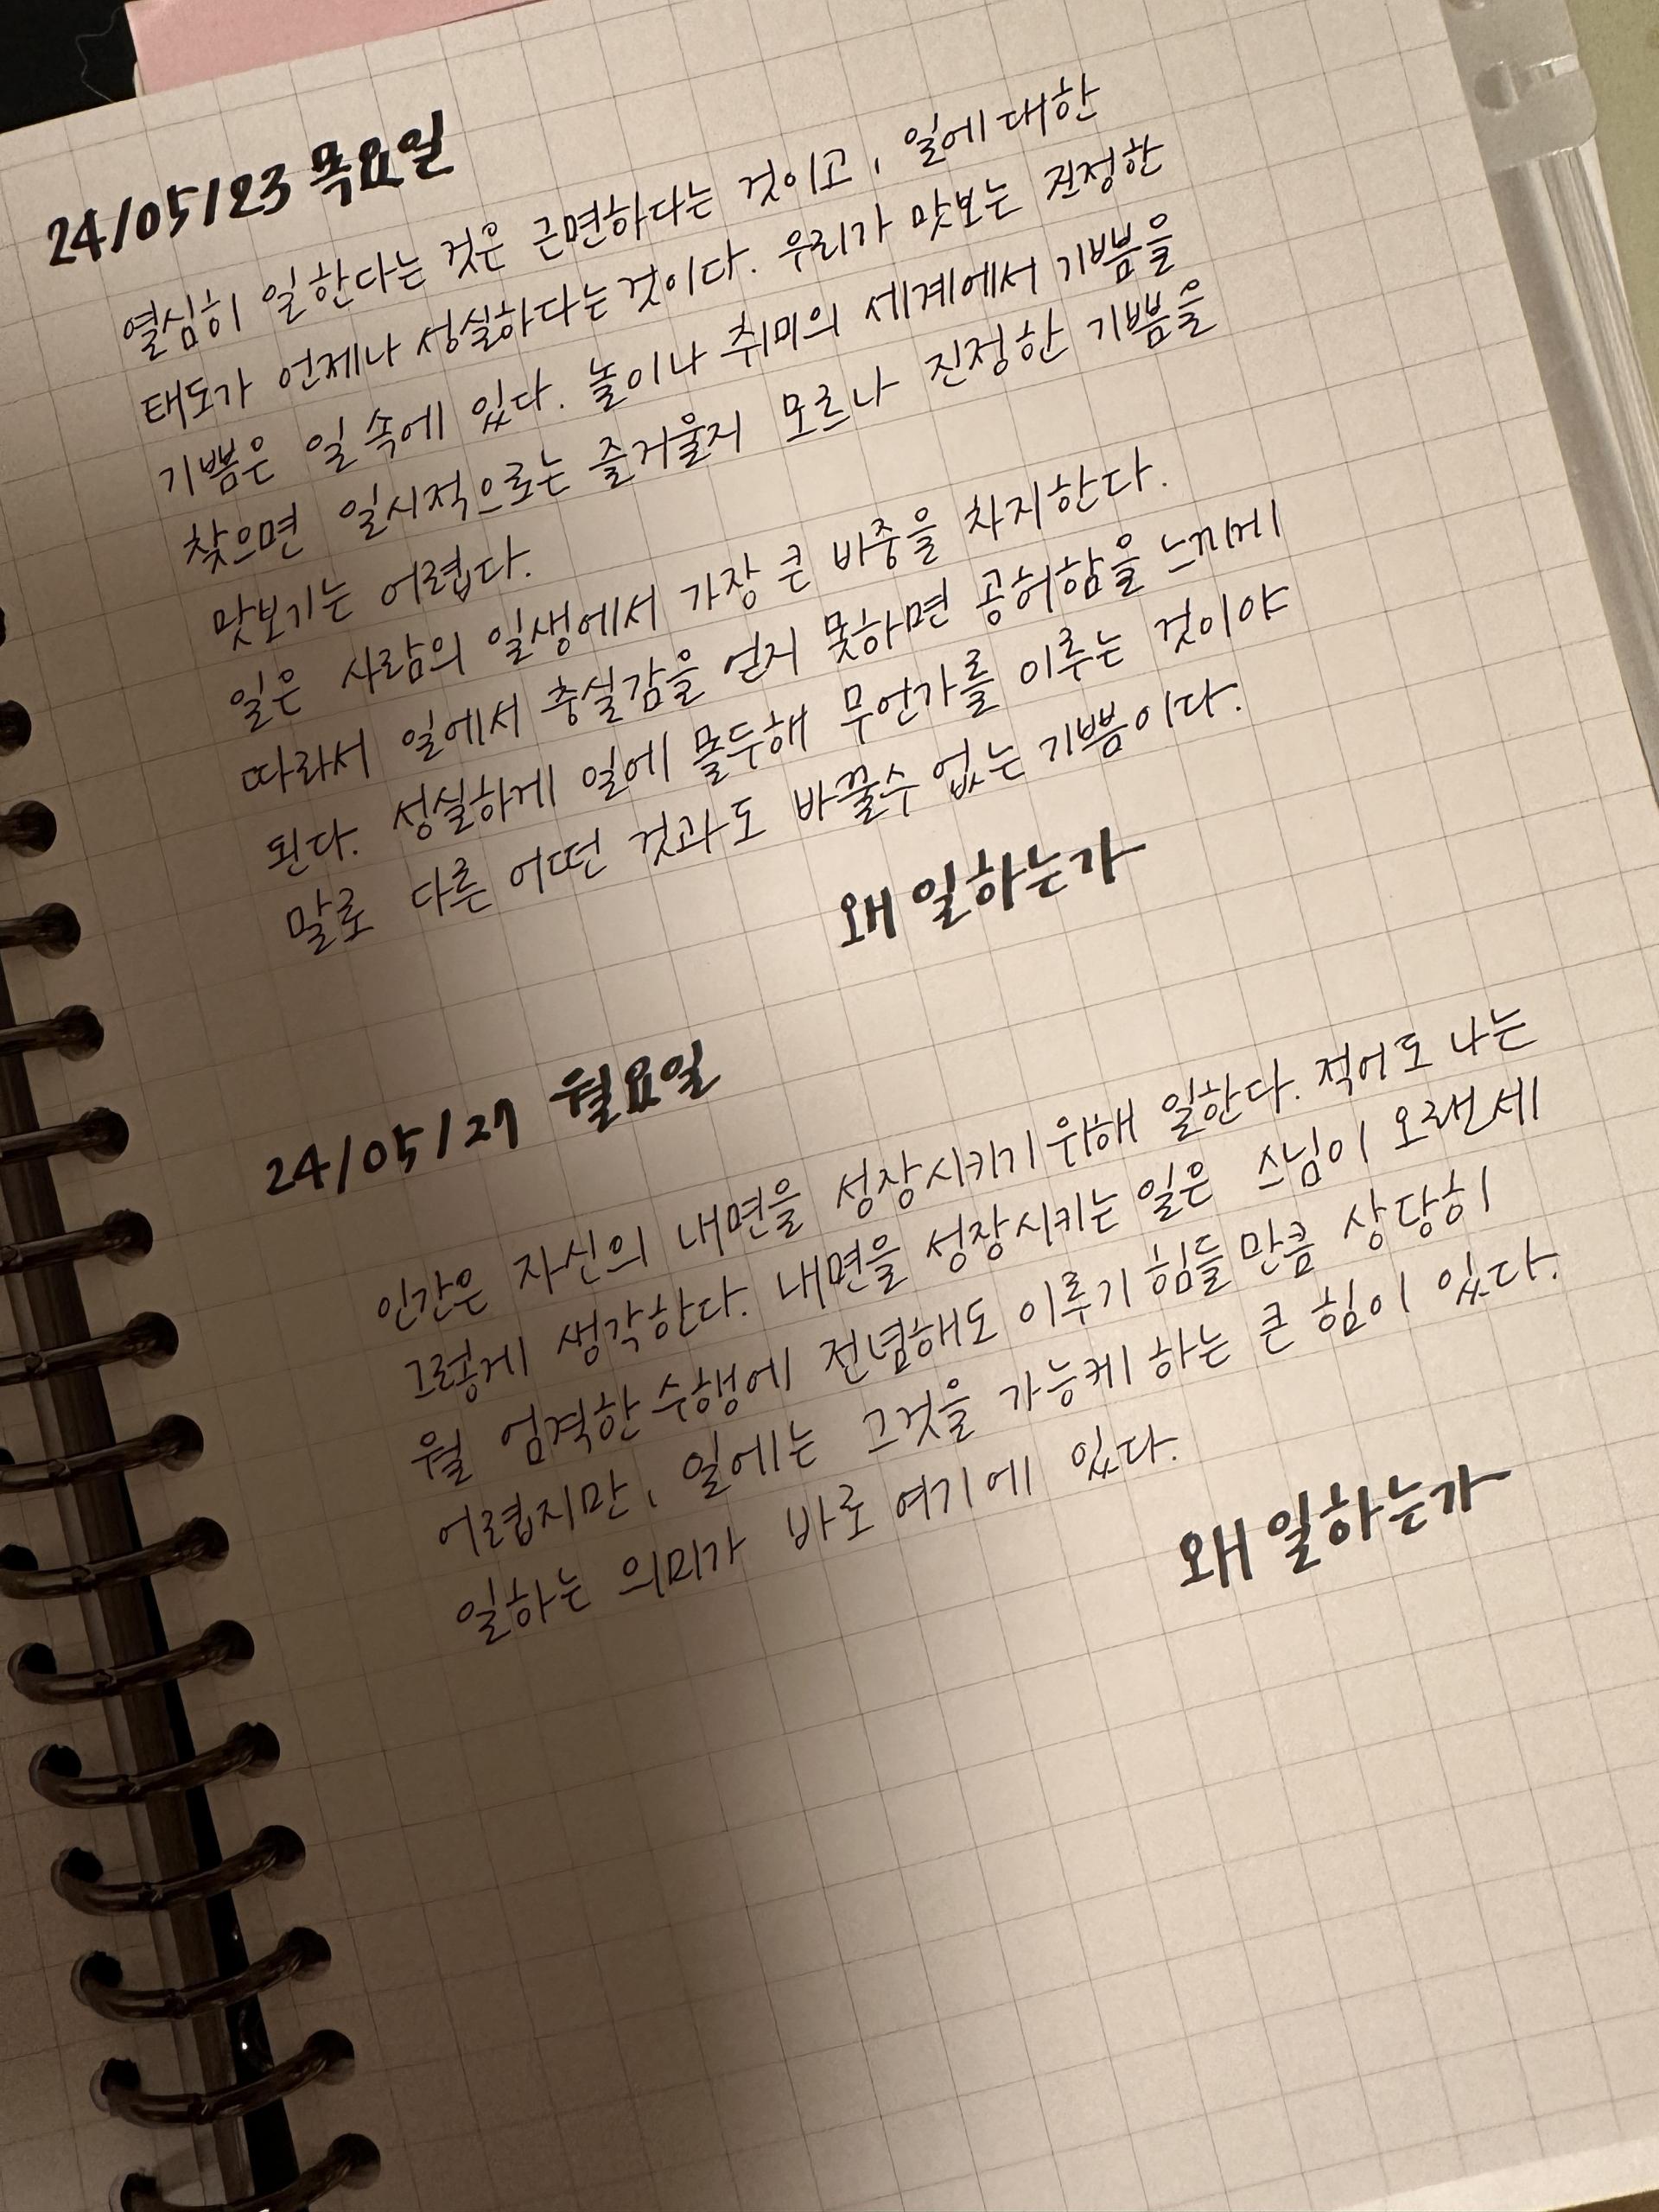 24/05/23 목요일
열심히 일한다는 것은 근면하다는 것이고, 일에 대한
태도가 언제나 성실하다는것이다. 우리가 맛보는 진정한
기쁨은 일 속에 있다. 놀이나 취미의 세계에서 기쁨을
찾으면 일시적으로는 즐거울지 모르나 진정한 기쁨을
맛보기는 어렵다.
일은 사람의 일생에서 가장 큰 비중을 차지한다.
따라서 일에서 충실감을 얻지 못하면 공허함을 느끼게
된다. 성실하게 일에 몰두해 무언가를 이루는 것이야
말로 다른 어떤 것과도 바꿀수 없는 기쁨이다.
왜 일하는가
24/05/27 월요일
인간은 자신의 내면을 성장시키기 위해 일한다. 적어도 나는
그렇게 생각한다. 내면을 성장시키는 일은 스님이 오랜세
월 엄격한 수행에 전념해도 이루기 힘들만큼 상당히
어렵지만, 일에는 그것을 가능케 하는 큰 힘이 있다.
일하는 의미가 바로 여기에 있다.
왜 일하는가